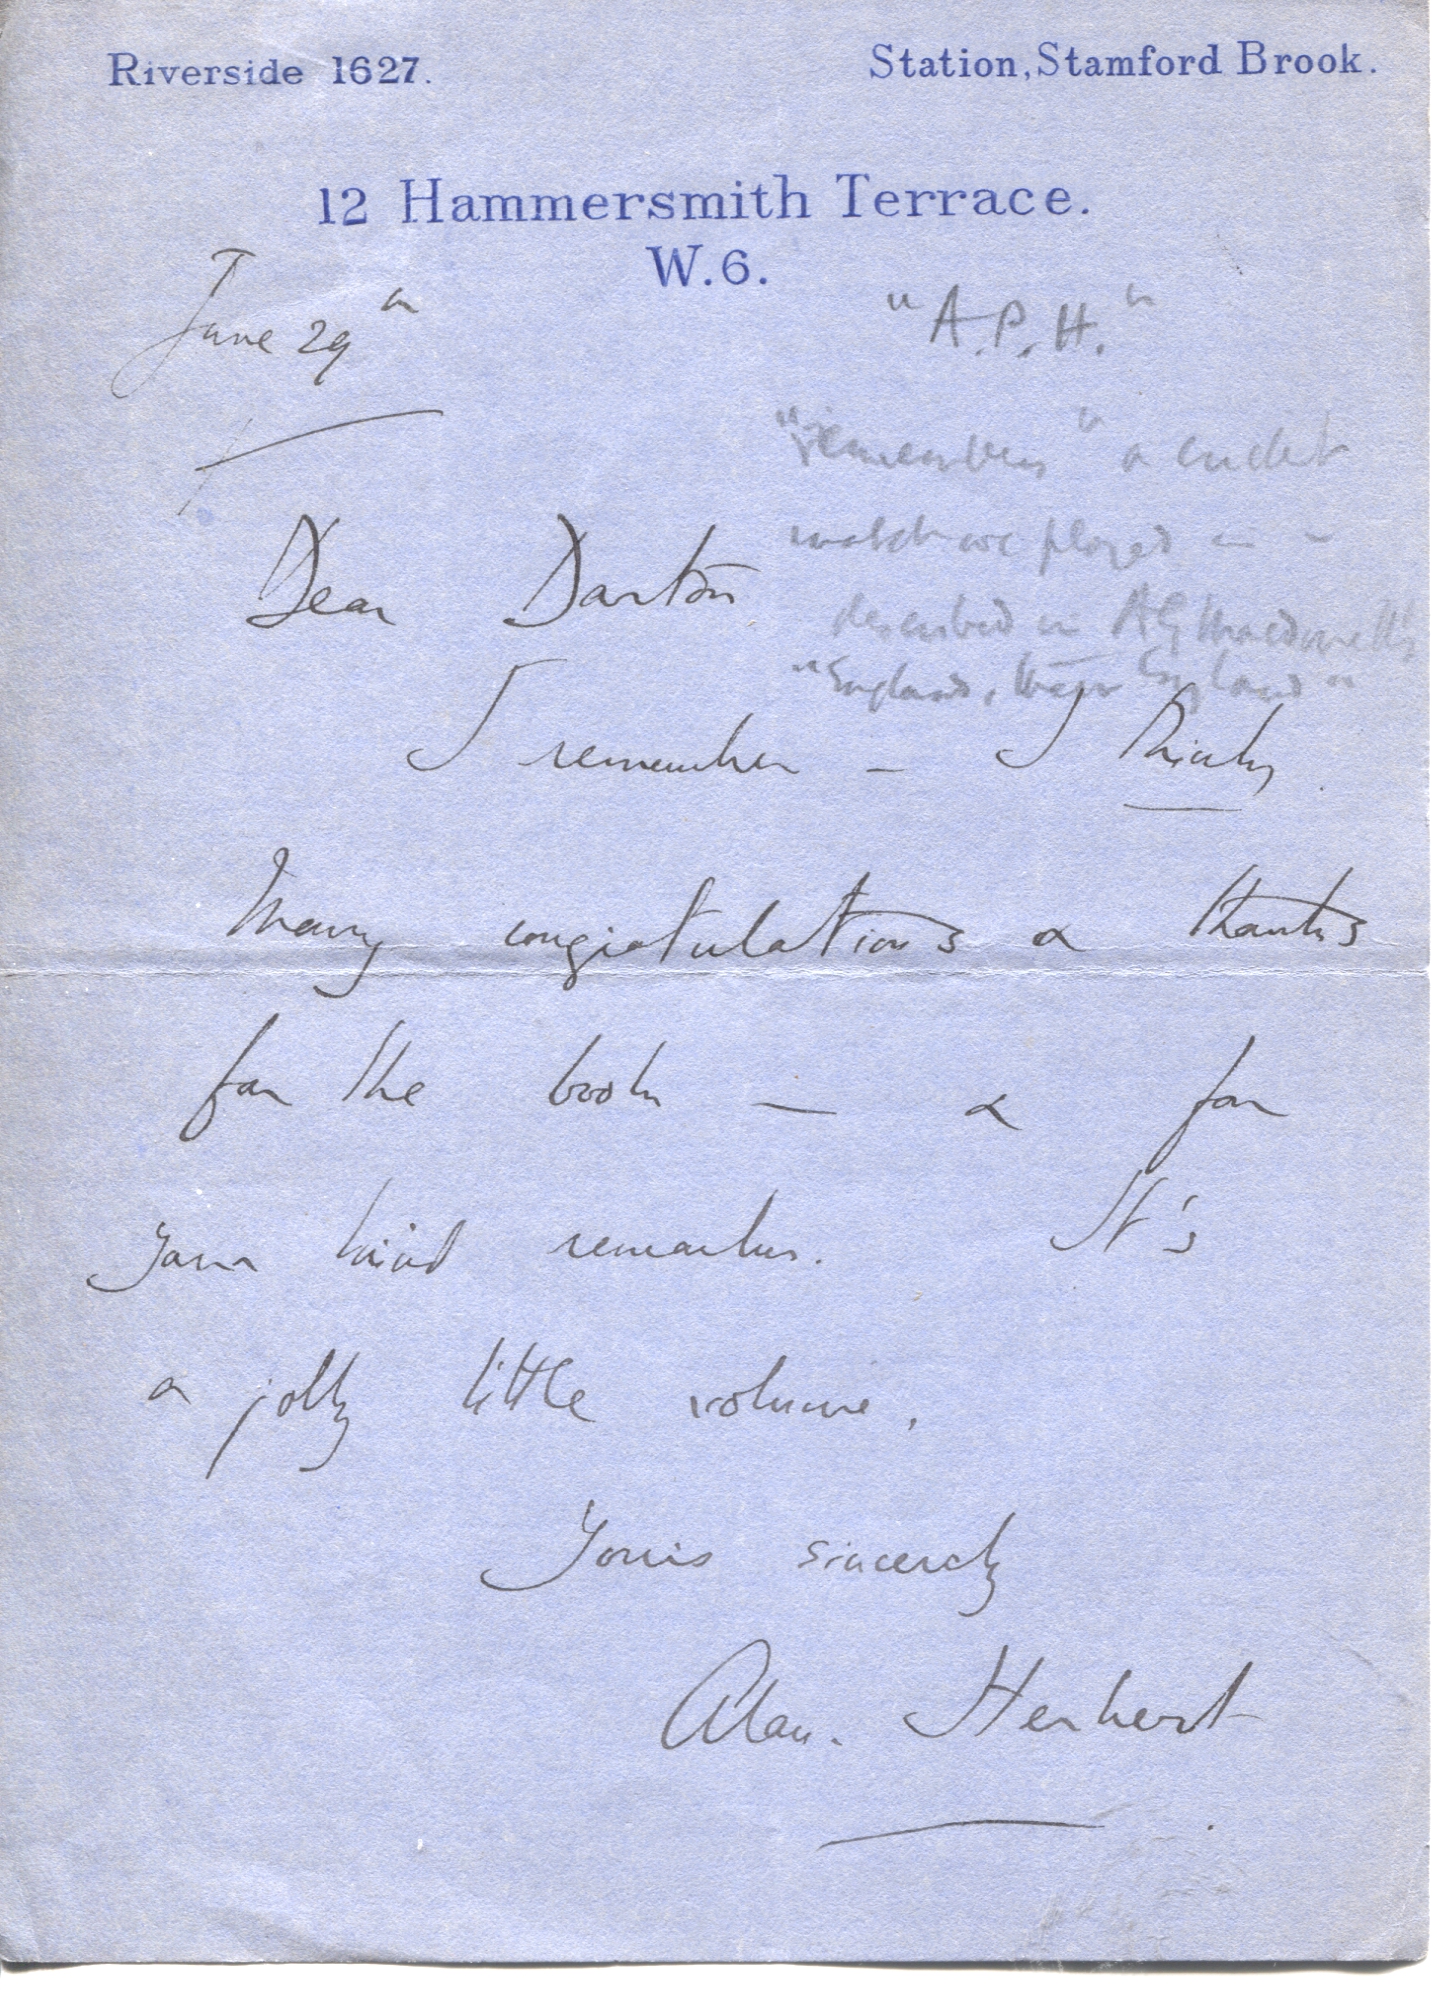 Riverside 1627.
Station, Stamford Brook.
12 Hammersmith Terrace.
W.6.
June 29th
"A.P.H."
"remembers" a cricket
match we played in -
described in AG Macdonell's
"England, their England"
Dear Darton
I remember - I think.
Many congratulations & thanks
for the book - & for
your kind remarks. It's
a jolly little volume.
Yours sincerely
Alan. Herbert